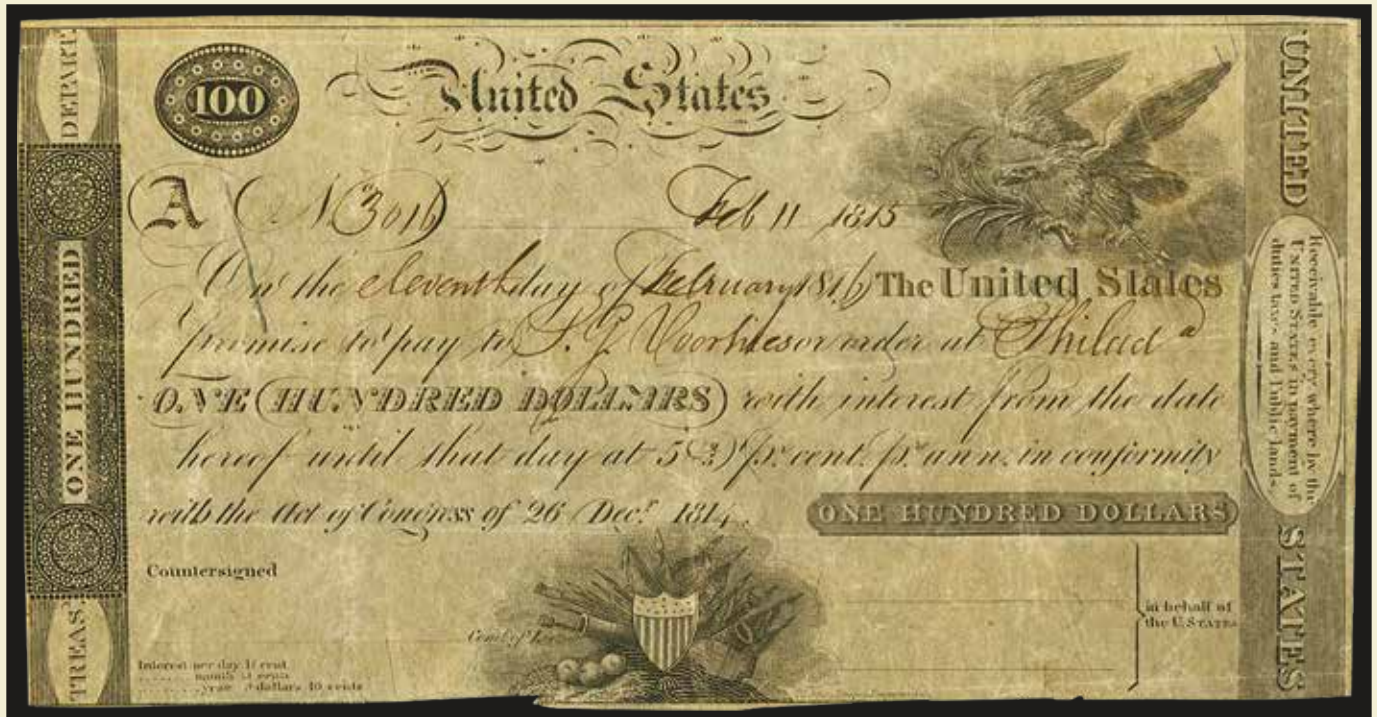 DEPART.
ONE HUNDRED
TREAS.
100
United States
A No 3016 Feb 11 1815
On the eleventh day of February 1816 The United States
promise to pay to or order at Philad a
ONE HUNDRED DOLLARS with interest from the date
hereof until that day at 5 2/5 pr cent. pr ann. in conformity
with the Act of Congress of 26 Decr 1814.
ONE HUNDRED DOLLARS
Countersigned
in behalf of
the U. STATES
Interest per day 1½ cent
month 45 cents
year 5 dollars 40 cents
UNITED
Receivable every where by the
UNITED STATES in payment of
duties taxes and Public lands.
STATES